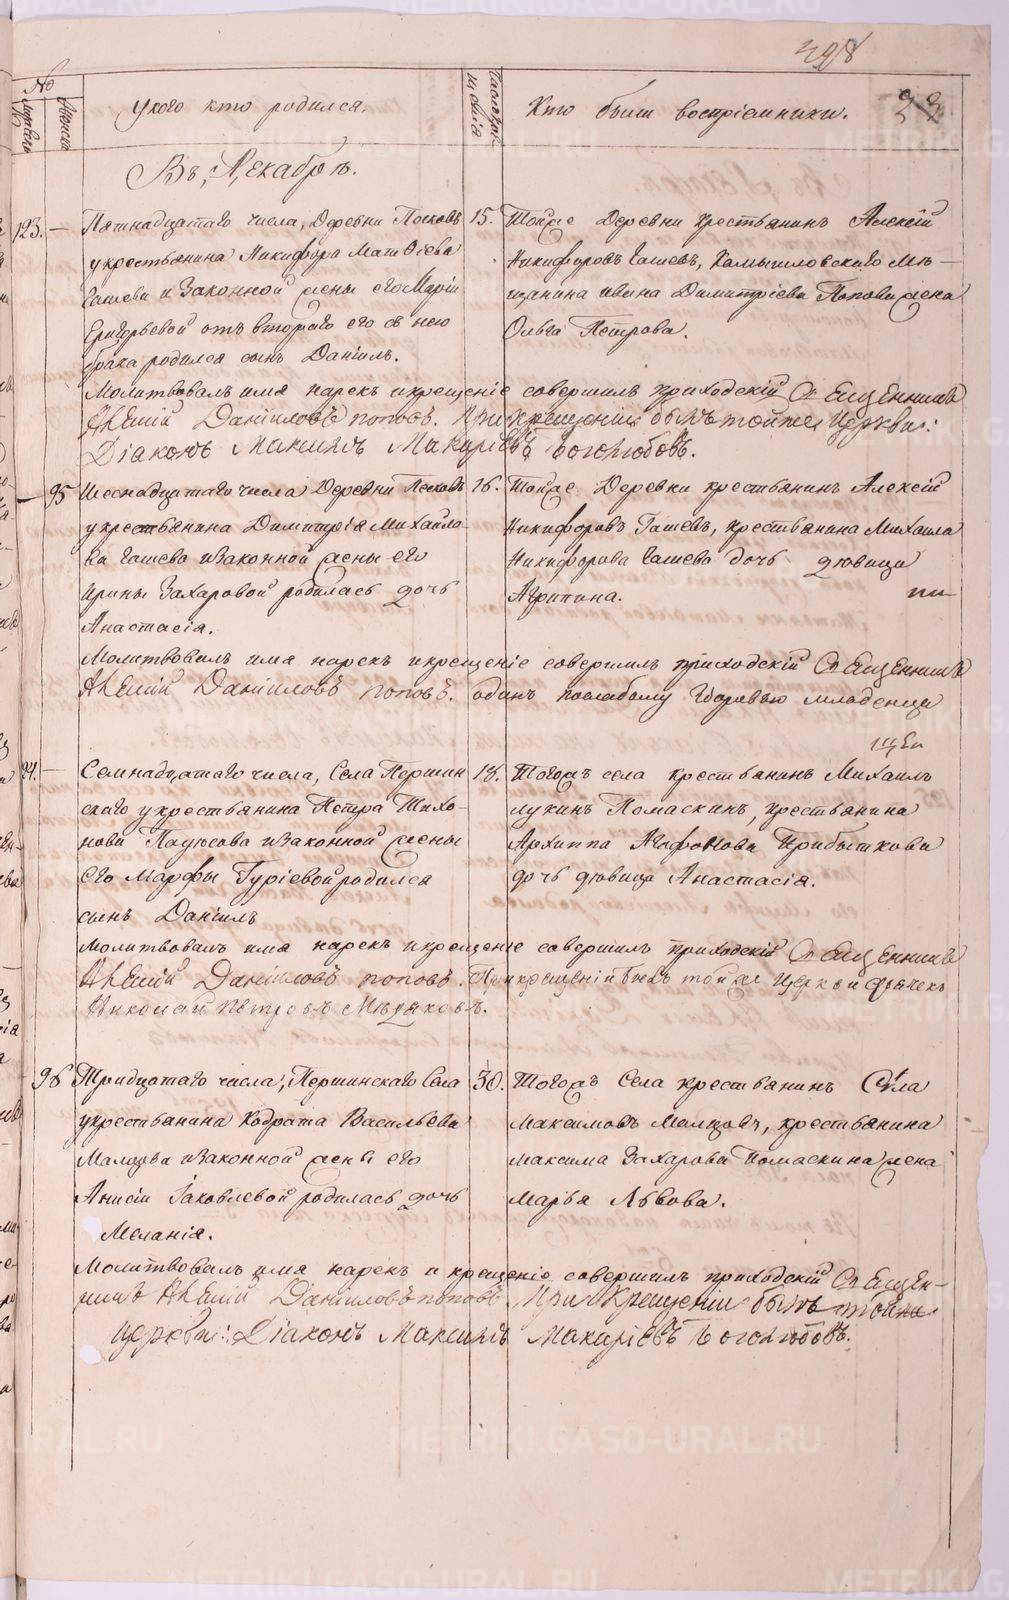 398
№
мужеска
женска
У кого кто родился.
Число крещенія
Кто были воспріемники.
33
Въ Декабрѣ.
123. — Пятнадцатаго числа, Деревни Пескова 15. Тойже Деревни крестьянинъ Алексій
у крестьянина Никифора Матѳіева Никифоровъ Гашевъ, Камышловскаго Мѣ-
Гашева и Законной жены его Маріи щанина Ивана Димитріева Попова жена
Григорьевой отъ втораго его съ нею Ольга Петрова.
брака родился сынъ Даніилъ.
Молитвовалъ имя нарекъ и крещеніе совершилъ приходскій Священникъ
Даніиловъ Поповъ. При крещеніи былъ тойже Церкви:
Діаконъ Максимъ Макаріевъ Боголюбовъ.
— 95 Шеснадцатаго числа Деревни Песковъ 16. Тойже Деревни крестьянинъ Алексій
у крестьянина Димитрія Михайло- Никифоровъ Гашевъ, крестьянина Михаила
ва Гашева и законной жены его Никифорова Гашева дочь дѣвица
Ирины Захаровой родилась дочь Агрипина.
Анастасія.
Молитвовалъ имя нарекъ и крещеніе совершилъ приходскій Священникъ
Даніиловъ Поповъ. одинъ послабому Здоровью младенца
24. — Семнадцатаго числа, Села Першин 18. Тогожъ села крестьянинъ Михаилъ
скаго у крестьянина Петра Тихо- Лукинъ Помаскинъ, крестьянина
нова законной жены Архиппа Агафонова Прибыткова
его Марфы Гуріевой родился дочь дѣвица Анастасія.
сынъ Даніилъ
Молитвовалъ имя нарекъ и крещеніе совершилъ приходскій Священникъ
Даніиловъ Поповъ. При крещеніи былъ тойже Церкви дьячекъ
Николай Петровъ
96 Тридцатаго числа, Першинскаго Села 30. Тогожъ Села крестьянинъ Сѵла
у крестьянина Кодрата Васильева Максимовъ Мальцовъ, крестьянина
Мальцова и законной жены его Максима Захарова Помаскина жена
Анисіи Іаковлевой родилась дочь Марѳа Львова.
Меланія.
Молитвовалъ имя нарекъ и крещеніе совершилъ приходскій Священ-
никъ Даніиловъ Поповъ При Крещеніи былъ тойже
Церкви: Діаконъ Максимъ Макаріевъ Боголюбовъ.
METRIKI.GASO-URAL.RU